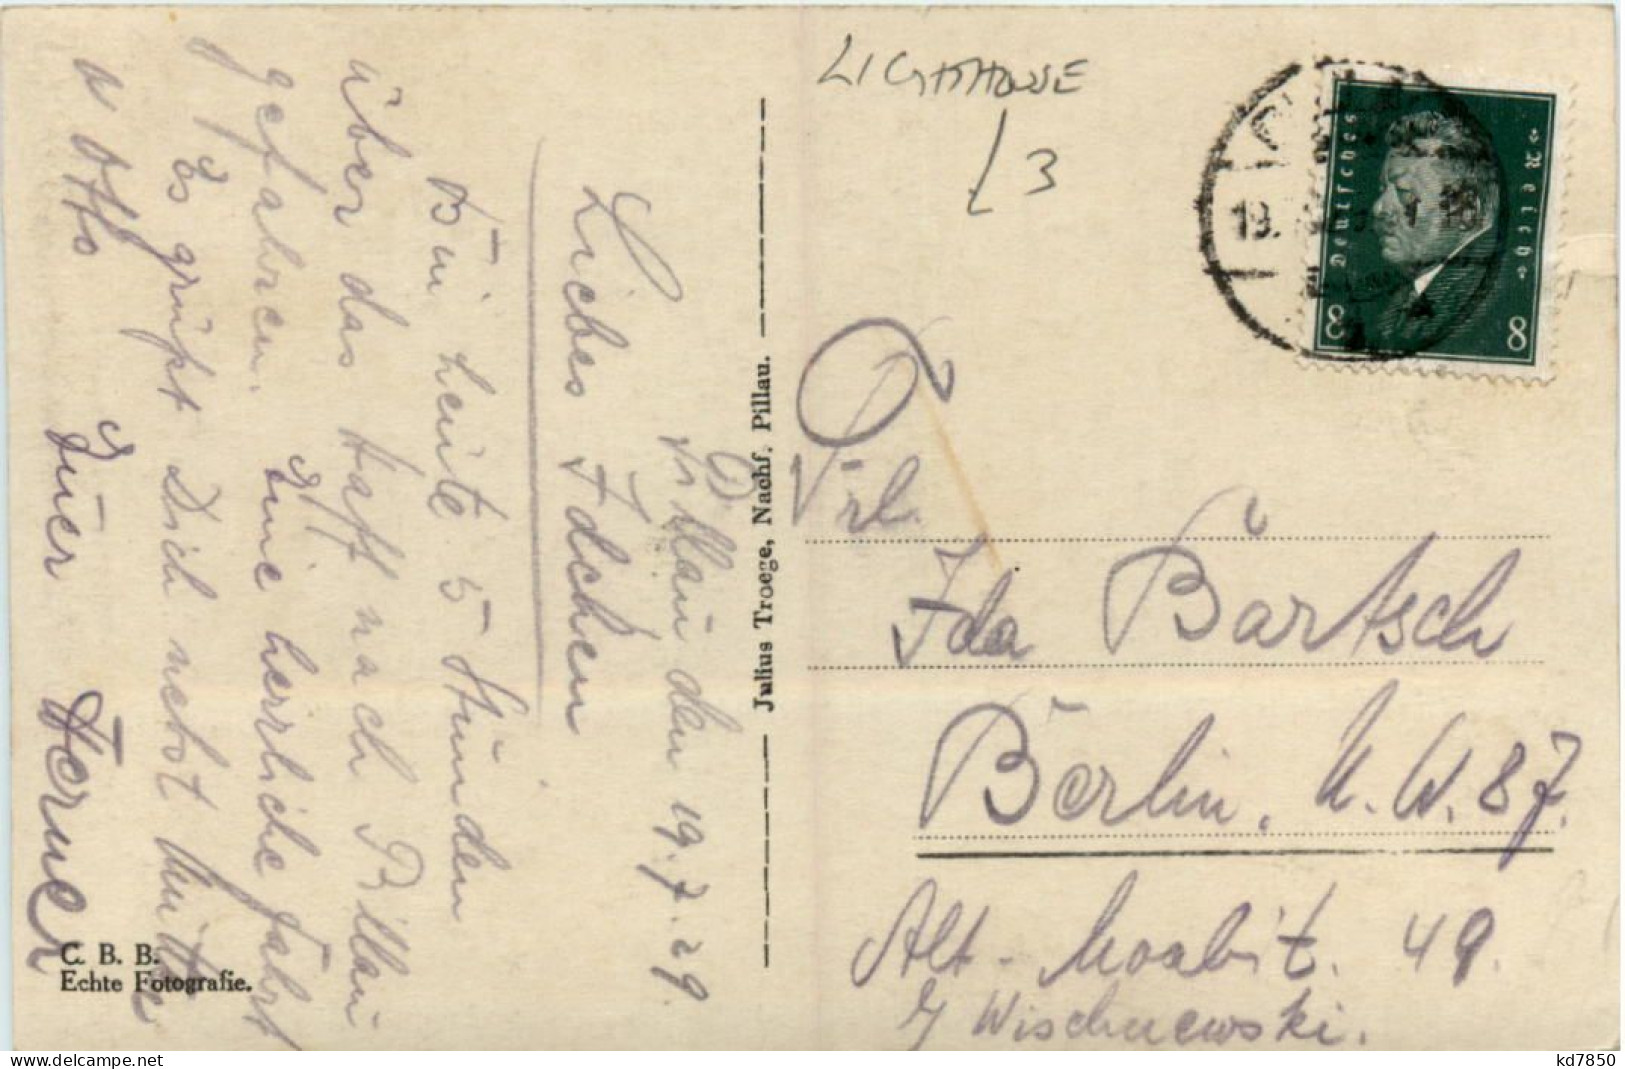 LIGHTHOUSE
£3
Deutsches Reich
8 8
19.
Pillau den 19.7.29.
Liebes Idchen
Bin heute 5 Stunden
über das Haff nach Pillau
gefahren. Eine herrliche Fahrt
Es grüßt Dich nebst Mutti
u Otto Euer Werner
C. B. B.
Echte Fotografie.
Julius Troege, Nachf. Pillau.
Frl.
Ida Bartsch
Berlin. N.W. 87.
Alt-Moabit. 49.
b/ Wischnewski.
kd7850